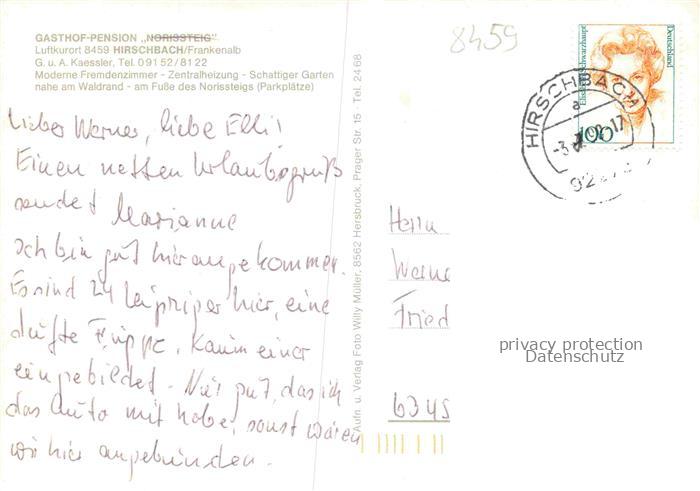 GASTHOF-PENSION „NORISSTEIG"
Luftkurort 8459 HIRSCHBACH/Frankenalb
G. u. A. Kaessler, Tel. 0 91 52 / 81 22
Moderne Fremdenzimmer - Zentralheizung - Schattiger Garten
nahe am Waldrand - am Fuße des Norissteigs (Parkplätze)
Lieber Werner, liebe Elli!
Einen netten Urlaubsgruß
sendet Marianne
Ich bin gut hier angekommen.
Es sind 24 Leipziger hier, eine
dufte Truppe, kaum einer
eingebildet. Nur gut, das ich
das Auto mit habe, sonst wären
wir hier angebunden.
Aufn. u. Verlag Foto Willy Müller, 8562 Hersbruck, Prager Str. 15 - Tel. 24 68
8459
Deutschland
Elisabeth Schwarzhaupt
100
HIRSCHBACH
a
92
Herrn
Werne
Fried
privacy protection
Datenschutz
6345